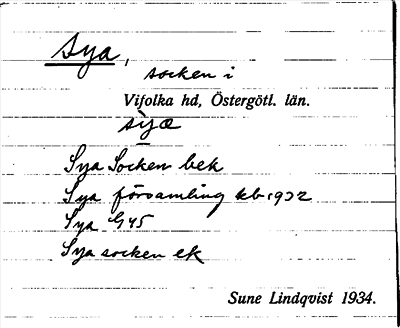 Sya,
socken i
Vifolka hd, Östergötl. län.
sỳæ
Sya Socken bek
Sya församling kb 1932
Sya G 45
Sya socken ek
Sune Lindqvist 1934.